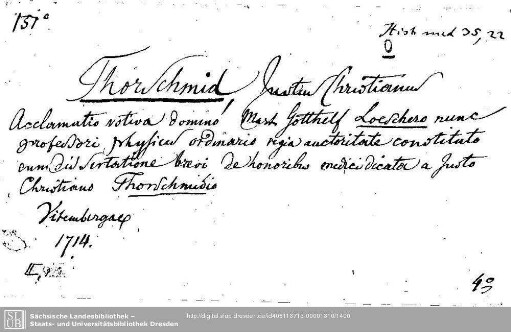 151°
Hist. med 35, 22
Thorschmid, Justus Christianus
Acclamatio votiva domino Mart. Gotthelf Loeschero nunc
professori physices ordinario regia auctoritate constituto
cum dissertatione brevi de honoribus medici dicata a Justo
Christiano Thorschmidio
Vitembergae
1714.
4°
Sächsische Landesbibliothek –
Staats- und Universitätsbibliothek Dresden